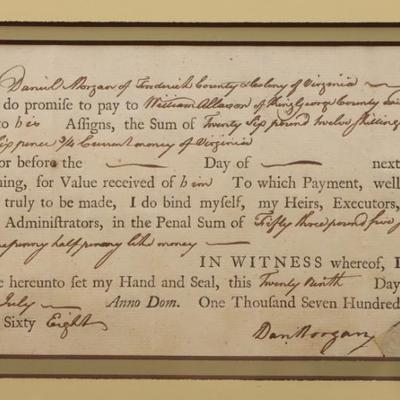 Daniel Morgan of Frederick County & Colony of Virginia
do promise to pay to William Allason of King George County
to his Assigns, the Sum of Twenty Six pound twelve Shillings
Six pence ¾ Current money of Virginia
or before the Day of next
ing, for Value received of him To which Payment, well
truly to be made, I do bind myself, my Heirs, Executors,
Administrators, in the Penal Sum of Fifty three pound five
penny half penny like money
IN WITNESS whereof, I
e hereunto set my Hand and Seal, this Twenty Ninth Day
July Anno Dom. One Thousand Seven Hundred
Sixty Eight
Dan Morgan